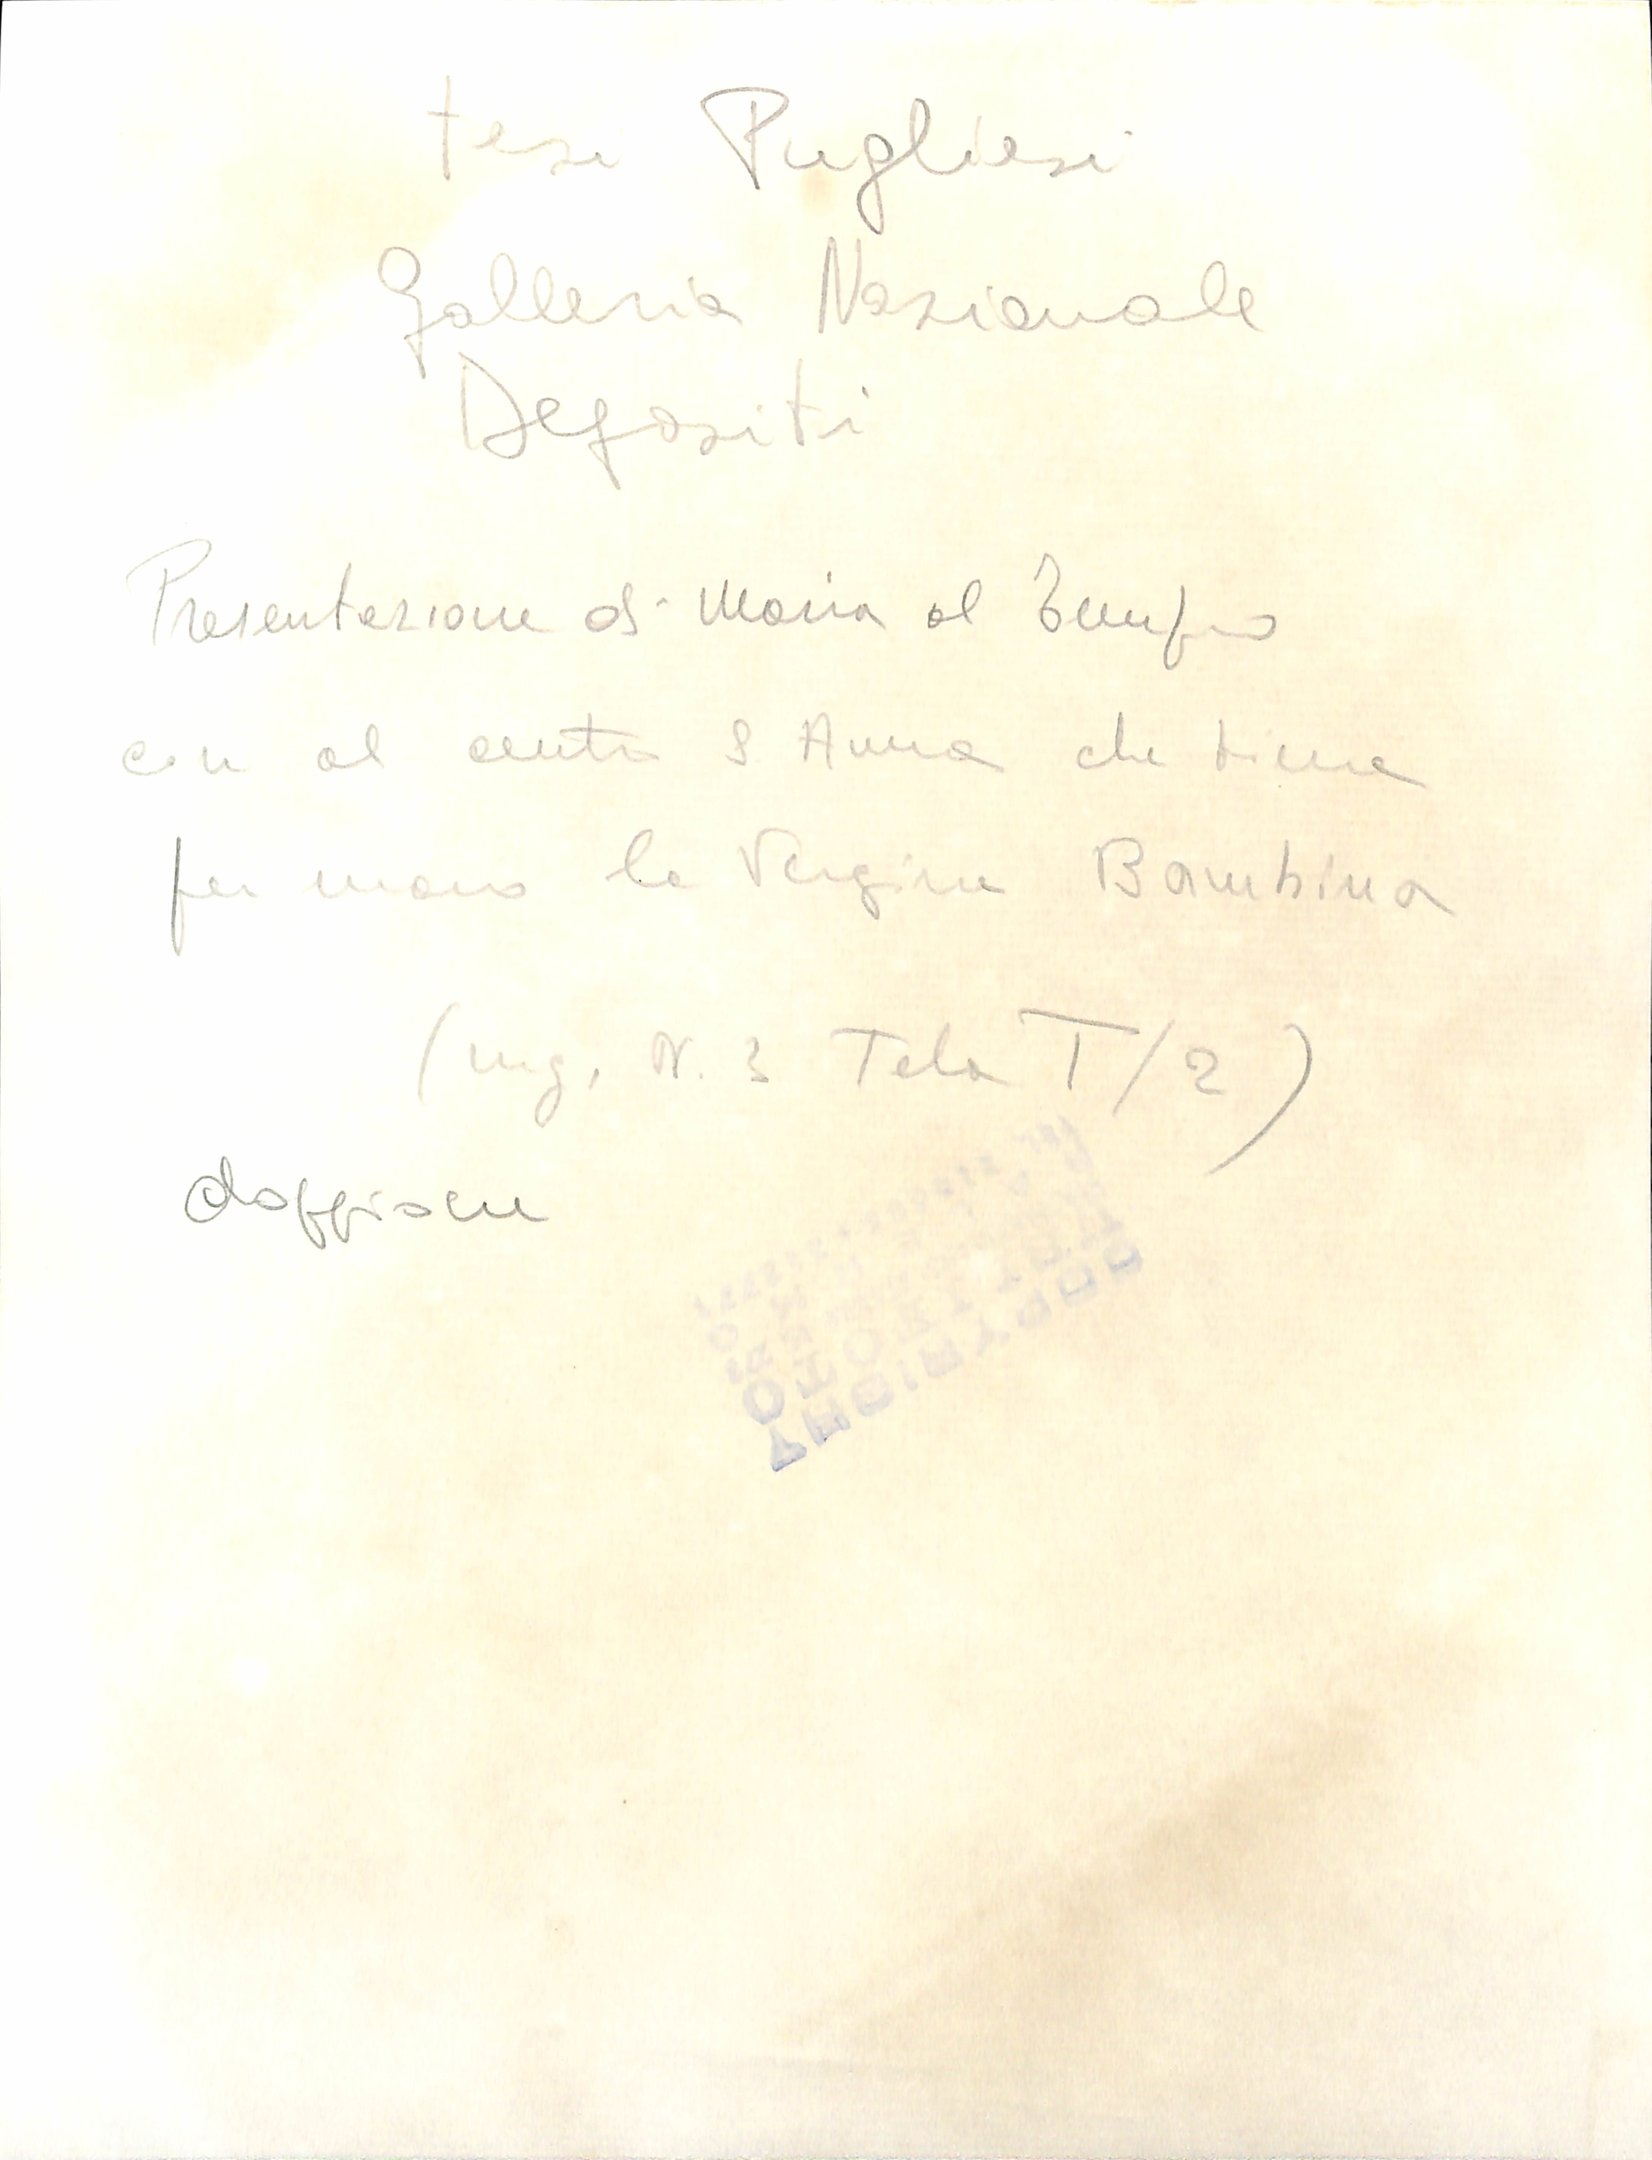 tesi Pugliesi
Galleria Nazionale
Depositi
Presentazione di Maria al Tempio
con al centro S. Anna che tiene
per mano la Vergine Bambina
(neg. N. 3 Tela T/2)
doppione